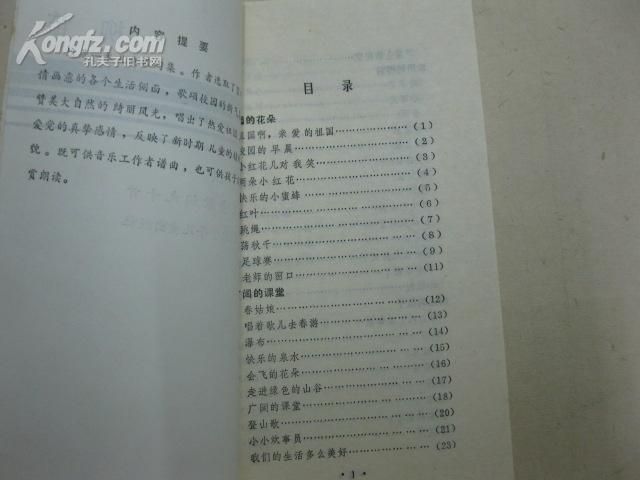 Kongfz.com
孔夫子旧书网
内容提要
集。作者选取了
情画意的各个生活侧面，歌颂校园的新
赞美大自然的绮丽风光，唱出了热爱祖国
爱党的真挚感情，反映了新时期儿童的精
貌。既可供音乐工作者谱曲，也可供孩子
赏朗读。
目录
的花朵
国啊，亲爱的祖国……………（1）
校园的早晨……………（2）
小红花儿对我笑……………（3）
两朵小红花……………（4）
快乐的小蜜蜂……………（5）
红叶……………（6）
跳绳……………（7）
荡秋千……………（8）
足球赛……………（9）
老师的窗口……………（11）
广阔的课堂
春姑娘……………（12）
唱着歌儿去春游……………（13）
瀑布……………（14）
快乐的泉水……………（15）
会飞的花朵……………（16）
走进绿色的山谷……………（17）
广阔的课堂……………（18）
登山歌……………（20）
小小炊事员……………（21）
我们的生活多么美好……………（23）
·1·